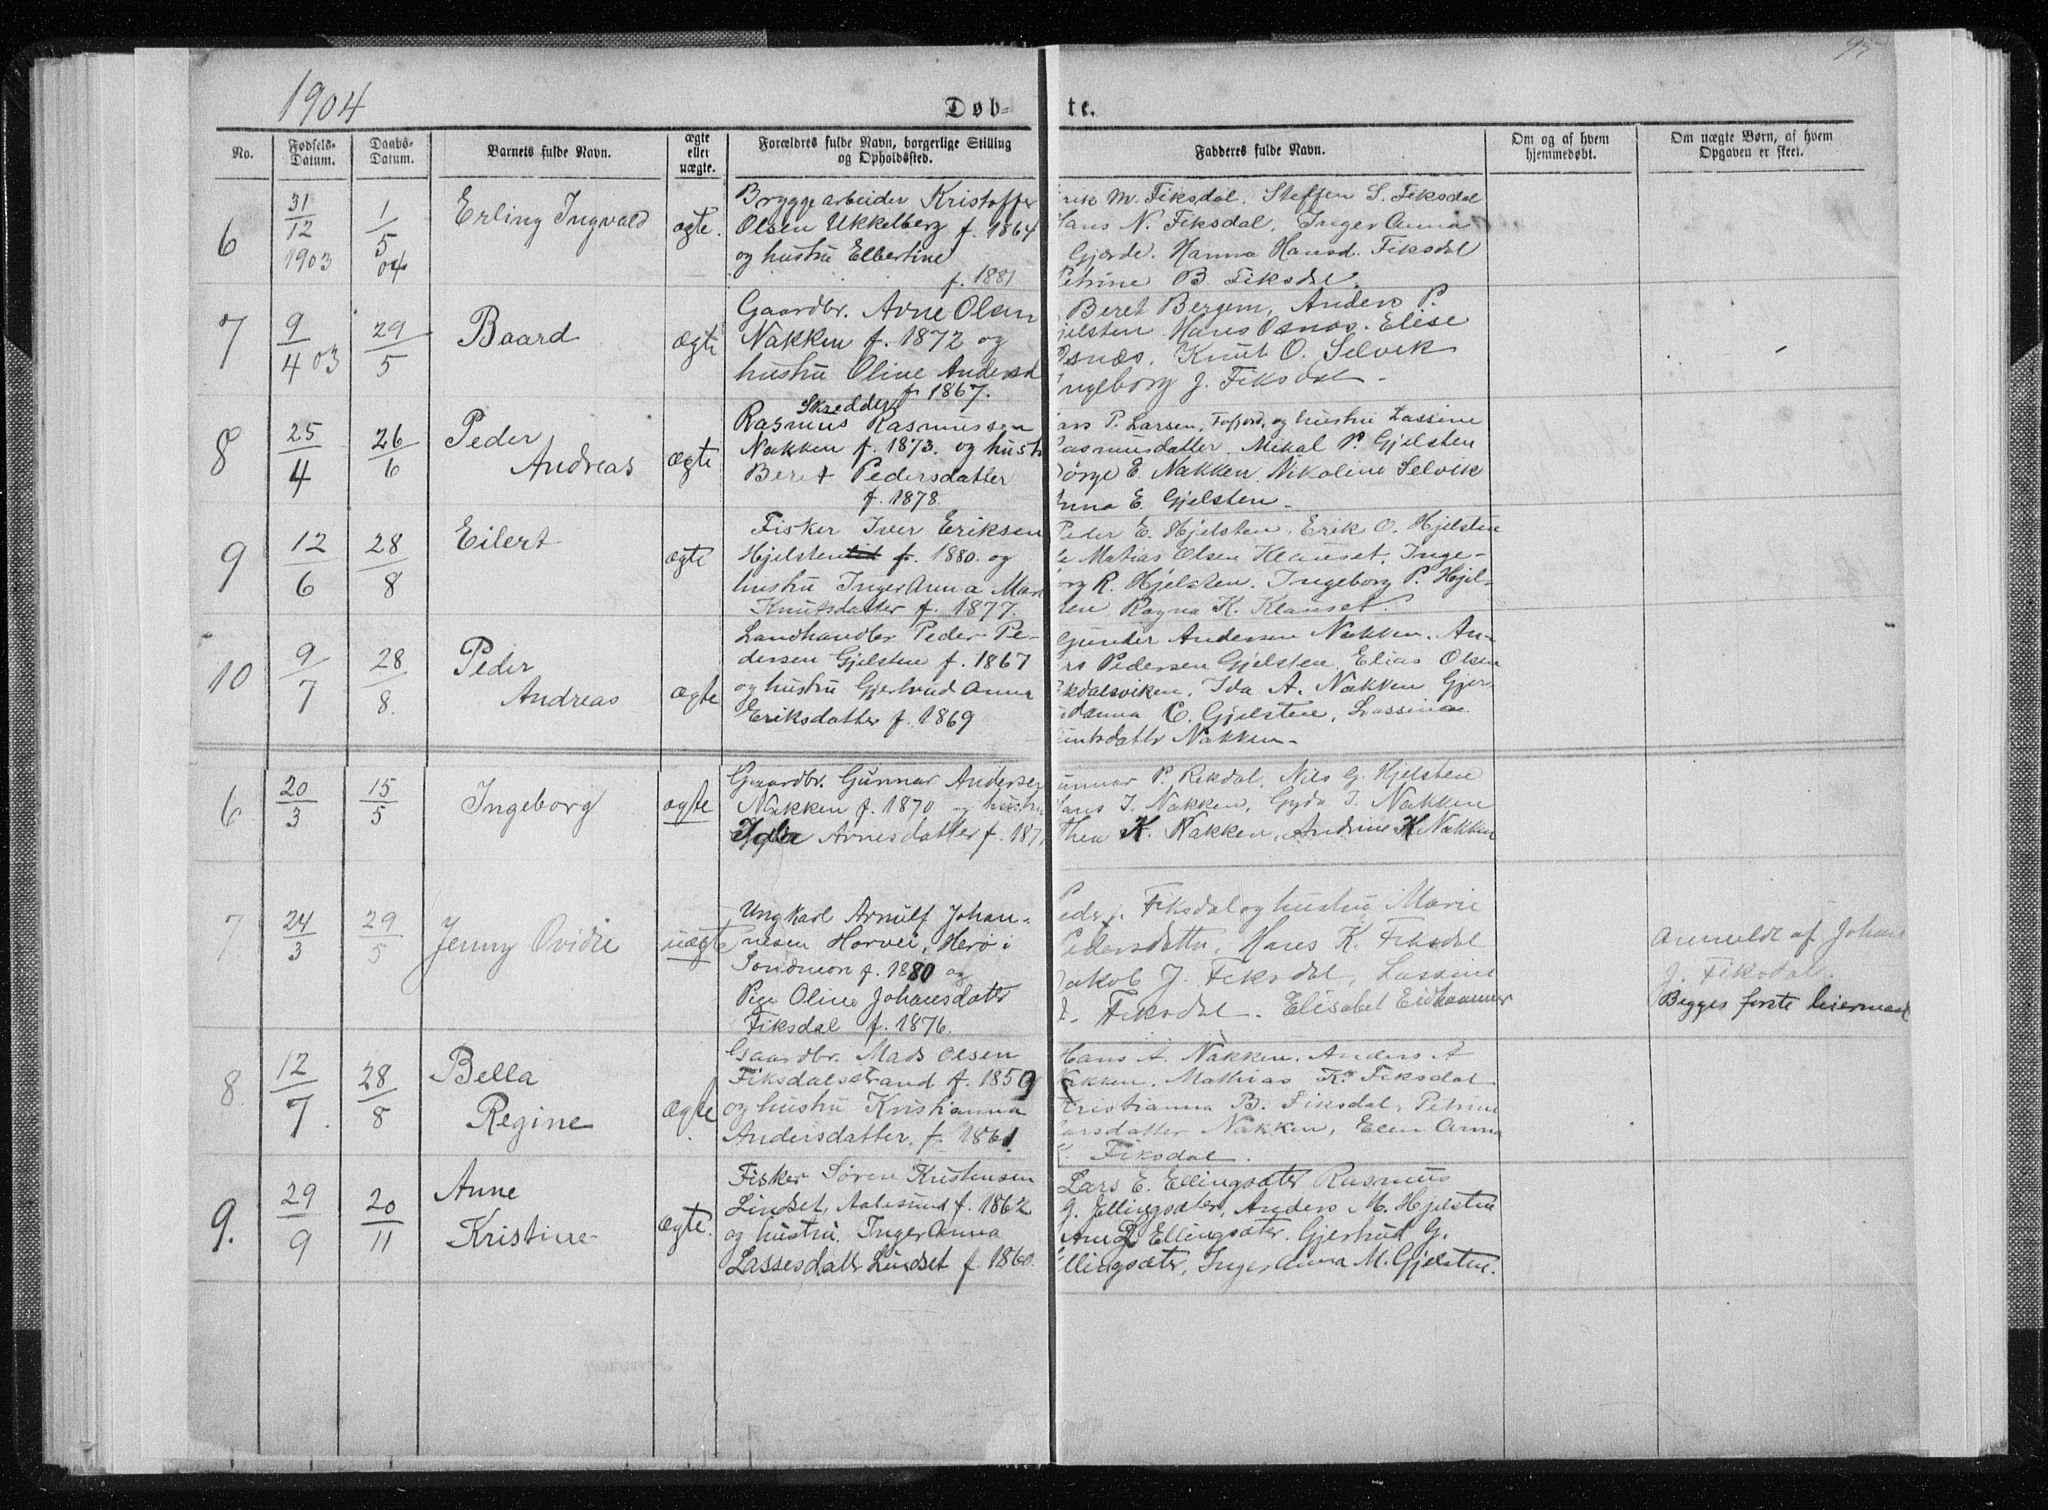 95
1904
Døb- te.
No.
Fødsels-
Datum.
Daabs-
Datum.
Barnets fulde Navn.
ægte
eller
uægte.
Forældres fulde Navn, borgerlige Stilling
og Opholdssted.
Fadderes fulde Navn.
Om og af hvem
hjemmedøbt.
Om uægte Børn, af hvem
Opgaven er skeet.
6
31/12 1903
1/5 04
Erling Ingvald
ægte.
Bryggearbeider Kristoffer
Olsen Ukkelberg f. 1864
og hustru Elbertine
f. 1881
Erik M. Fiksdal. Steffen S. Fiksdal
Hans N. Fiksdal, Inger Anna
Gjærde. Hanna Hansd. Fiksdal
Petrine B Fiksdal.
7
9/4 03
29/5
Baard
ægte
Gaardbr. Arne Olsen
Nakken f. 1872 og
hustru Oline Andersd
f. 1867.
Beret Bergem, Anders P.
Gjelsten. Hans Osnæs. Elise
Osnæs. Knut O. Selvik
Ingeborg J. Fiksdal -
8
25/4
26/6
Peder
Andreas
ægte
Skredder
Rasmus Rasmussen
Nakken f. 1873. og hustr
Beret Pedersdatter
f. 1878
Lars P. Larsen, Tofjord, og hustru Lassine
Rasmusdatter. Mikal P. Gjelsten
Børge E. Nakken. Nikoline Selvik
Anna E. Gjelsten -
9
12/6
28/8
Eilert
ægte
Fisker Iver Eriksen
Hjelsten f. 1880. og
hustru Inger Anna Mari
Knutsdatter f. 1877.
Peder E. Hjelsten, Erik O. Hjelsten
Matias Olsen Klauset. Inge-
borg R. Hjelsten. Ingeborg P. Hjel-
sten Ragna K. Klauset.
10
9/7
28/8.
Peder
Andreas
ægte
Landhandler Peder Pe-
dersen Gjelsten f. 1867
og hustru Gjertrud Anna
Eriksdatter f. 1869
Gunder Andersen Nakken. An-
ders Pedersen Gjelsten, Elias Olsen
Rekdalsviken, Ida A. Nakken Gjer-
tudanna O. Gjelsten, Lassina
Knutsdattr Nakken -
6
20/3
15/5
Ingeborg
ægte
Gaardbr. Gunnar Andersen
Nakken f. 1870 og hustru
Arnesdatter f. 187
Gunnar P. Rekdal, Nils G. Hjelsten
Hans I. Nakken, Gyda I. Nakken
Thea K. Nakken, Andrine K Nakken
7
24/3
29/5
Jenny Ovidie
uægte
Ungkarl Arnulf Johan-
nesen Horvei, Herø i
Søndmør f. 1880 og
Pige Oline Johansdattr
Fiksdal f. 1876.
Peder J. Fiksdal og hustru Marie
Pedersdattr, Hans K. Fiksdal
Jakob J. Fiksdal, Lassine
J. Fiksdal. Elisabet Eidhammer
Anmeldt af Johans
J. Fiksdal.
Begges første leiermaal
8.
12/7.
28/8
Bella
Regine
ægte
Gaardbr. Mads Olsen
Fiksdalsstrand f. 1859
og hustru Kristianna
Andersdatter. f. 1861
Hans A. Nakken. Anders A
Nakken. Mathias K. Fiksdal
Kristianna B. Fiksdal, Petrine
Larsdatter Nakken, Elen Anna
K. Fiksdal.
9.
29/9
20/11
Anne
Kristine
ægte.
Fisker Søren Kristensen
Lindset, Aalesund f. 1862
og hustru, Inger Anna
Lassesdattr Lindset f. 1860.
Lars E. Ellingsæter Rasmus
G. Ellingsæter, Anders M. Hjelsten
Ane L. Ellingsæter. Gjertrud G.
Ellingsæter, Inger Anna M. Gjelsten.